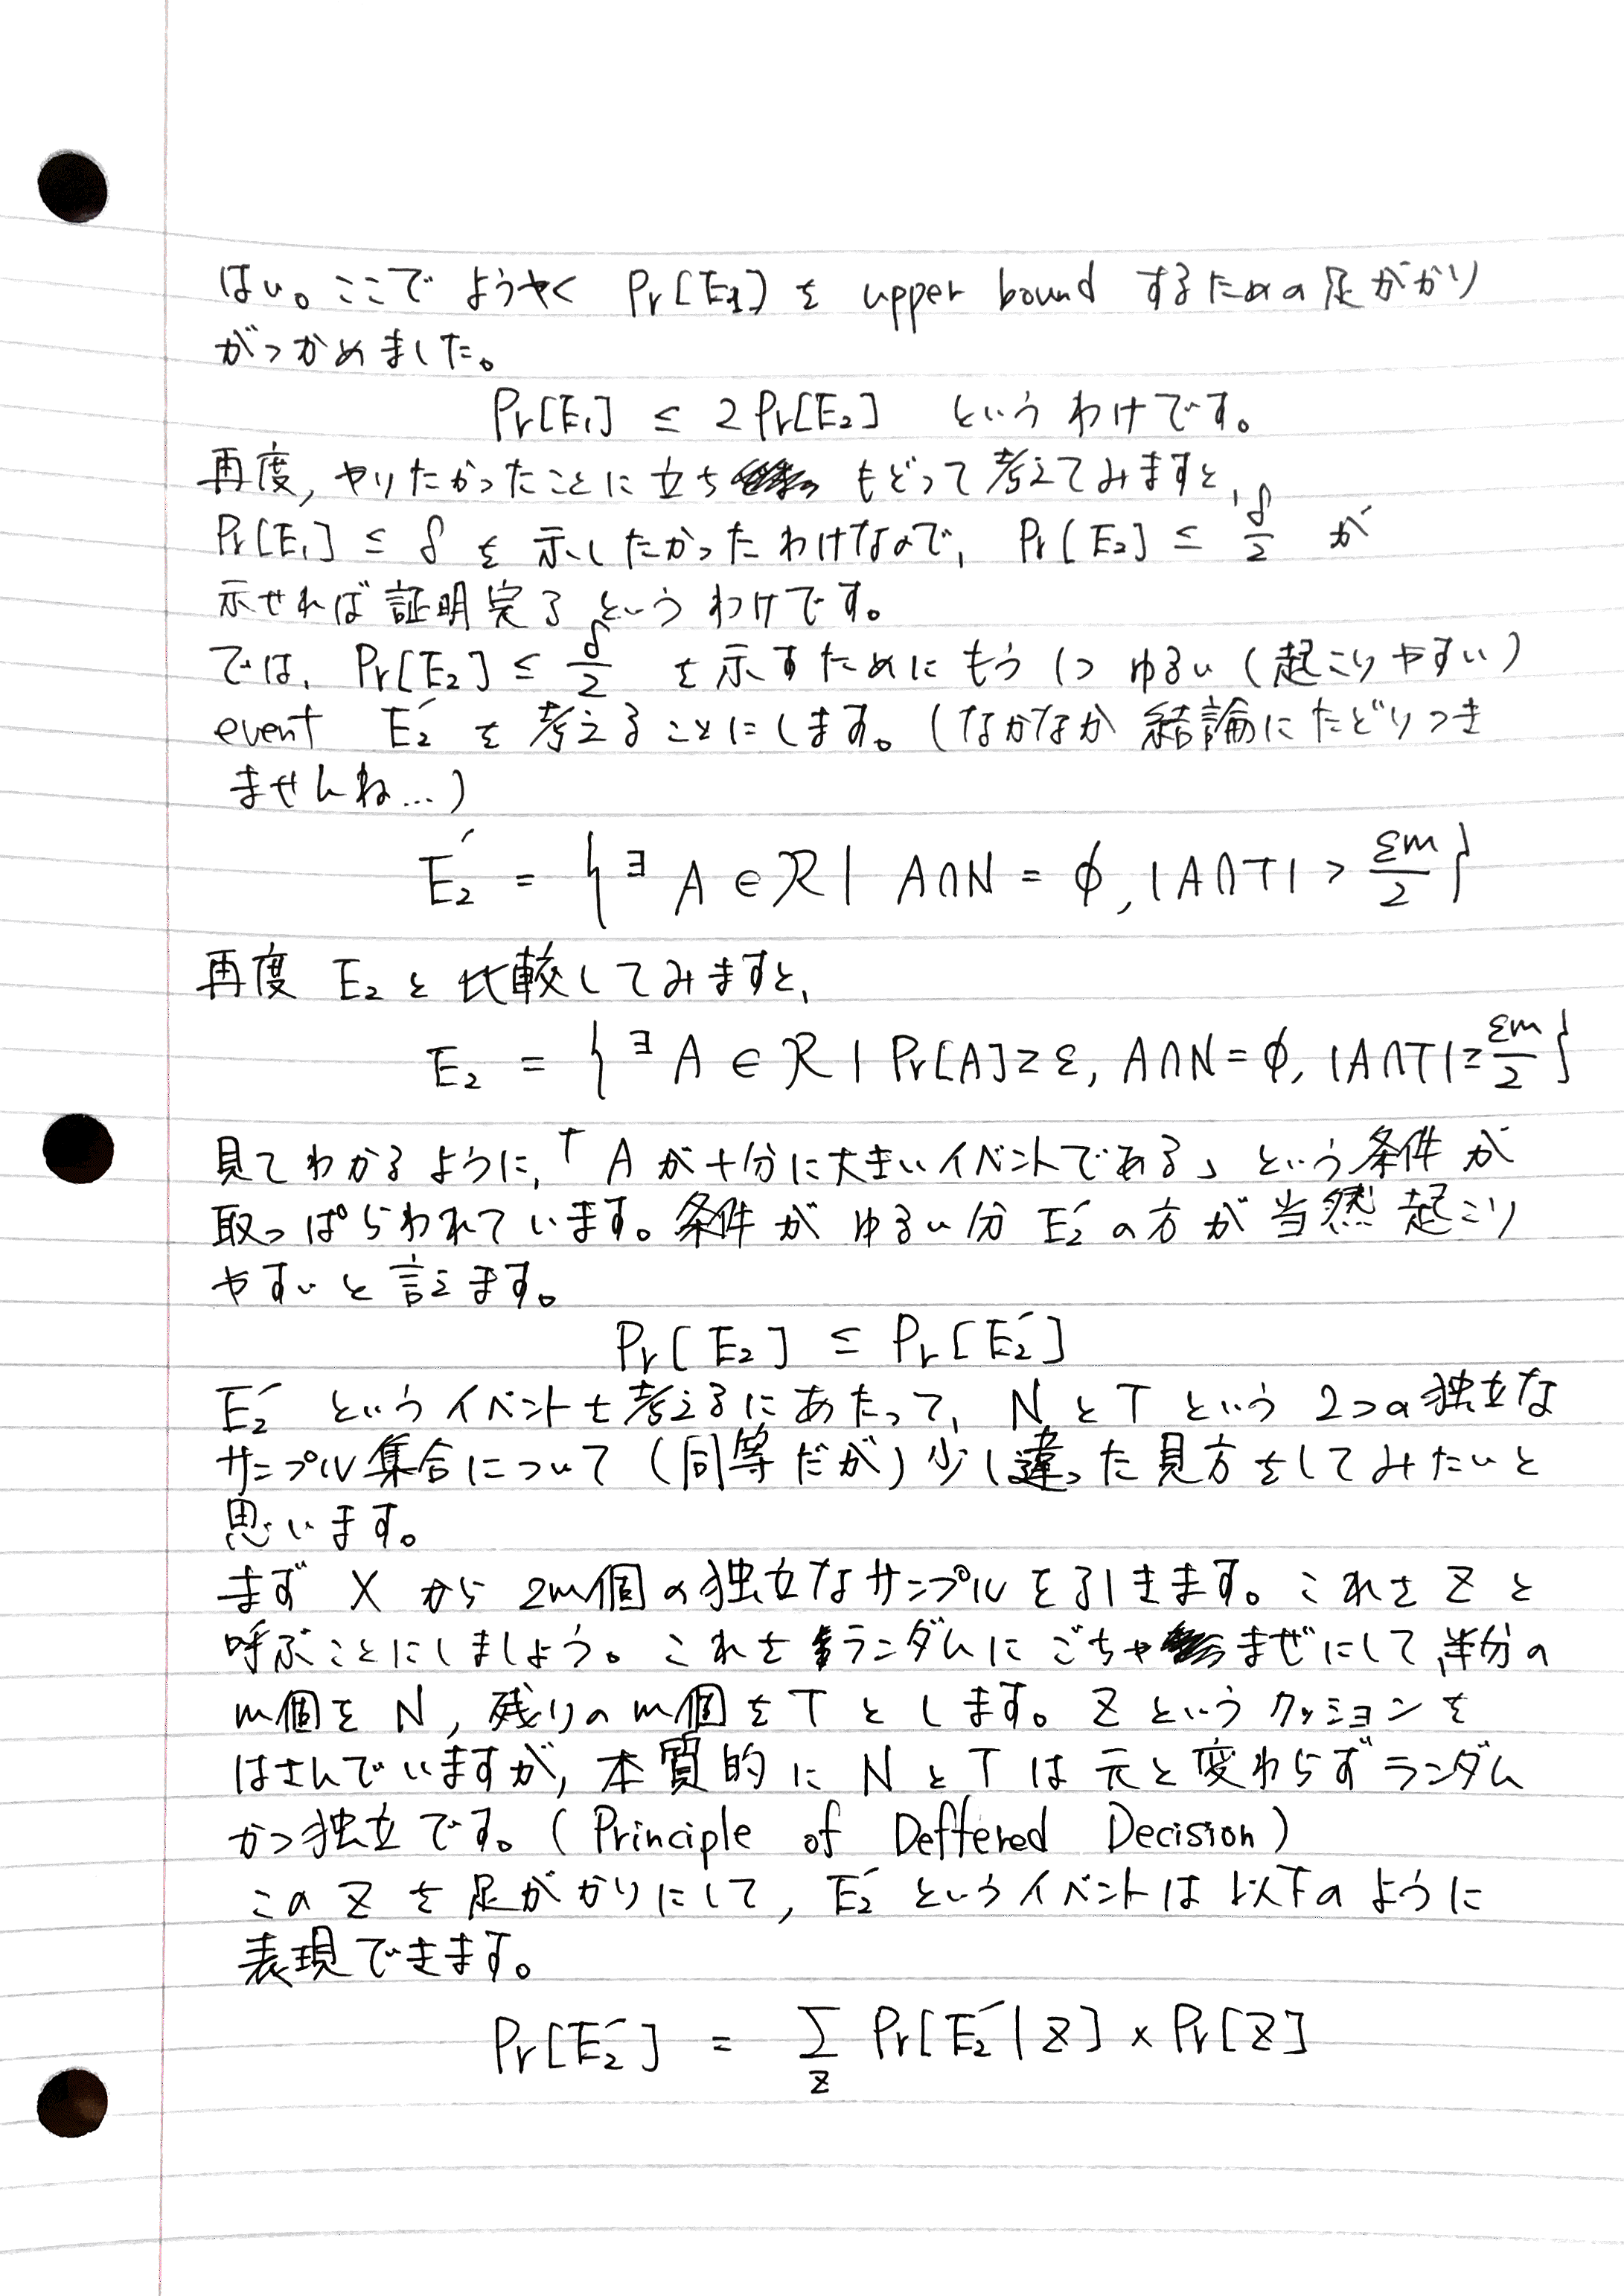 はい。ここで ようやく Pr[E1] を upper bound するための足がかり
がつかめました。
Pr[E1] ≤ 2Pr[E2] というわけです。
再度, やりたかったことに立ち もどって考えてみますと,
Pr[E1] ≤ δ を示したかったわけなので, Pr[E2] ≤ δ/2 が
示せれば証明完了というわけです。
では, Pr[E2] ≤ δ/2 を示すためにもう1つ ゆるい(起こりやすい)
event E2´ を考えることにします。(なかなか結論にたどりつき
ませんね...)
E2´ = {∃A ∈ R | A∩N = ϕ, |A∩T| > εm/2}
再度 E2 と比較してみますと,
E2 = {∃A ∈ R | Pr[A] ≥ ε, A∩N = ϕ, |A∩T| ≥ εm/2}
見てわかるように,「Aが十分に大きいイベントである」という条件が
取っぱらわれています。条件がゆるい分 E2´ の方が当然起こり
やすいと言えます。
Pr[E2] ≤ Pr[E2´]
E2´ というイベントを考えるにあたって, N と T という 2つの独立な
サンプル集合について(同等だが)少し違った見方をしてみたいと
思います。
まず X から 2m個の独立なサンプルを引きます。これを Z と
呼ぶことにしましょう。これをランダムにごちゃまぜにして,半分の
m個を N, 残りのm個を T とします。Z というクッションを
はさんでいますが, 本質的に N と T は元と変わらずランダム
かつ独立です。(Principle of Deffered Decision)
この Z を足がかりにして, E2´ というイベントは以下のように
表現できます。
Pr[E2´] = ∑Z Pr[E2´|Z] × Pr[Z]